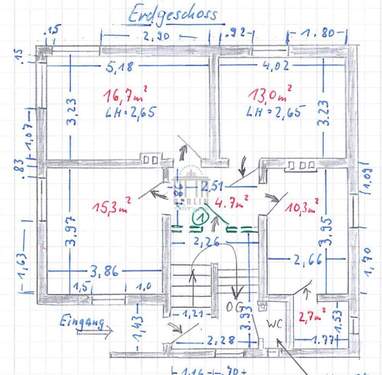 Erdgeschoss
.15
2,90
.92
1.80
.15
5,18
4,02
16,7m²
LH=2,65
13,0m²
LH=2,65
3,23
3,23
1,07
.83
.86
2,51
1,09
15,3m²
4.7m²
10,3m²
BERLIN
1
3,97
2,26
3,95
1,63
2,66
3,86
1,5
1,0
1,70
OG
2,7m²
Eingang
1,43
1,21
3,93
WC
1,53
2,28
1.77
1,14
.70